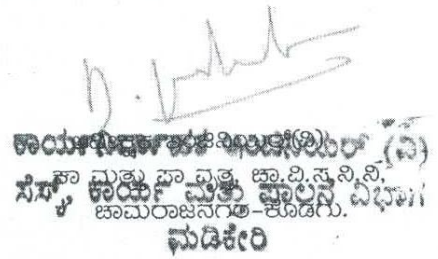 ಕಾರ್ಯನಿರ್ವಾಹಕ ಇಂಜಿನಿಯರ್ (ವಿ)
ಕಾ ಮತ್ತು ಪಾ ವೃತ್ತ ಚಾ.ವಿ.ಸ.ನಿ.ನಿ.
ಸೆಸ್ಕ್, ಕಾರ್ಯ ಮತ್ತು ಪಾಲನೆ ವಿಭಾಗ
ಚಾಮರಾಜನಗರ-ಕೊಡಗು.
ಮಡಿಕೇರಿ